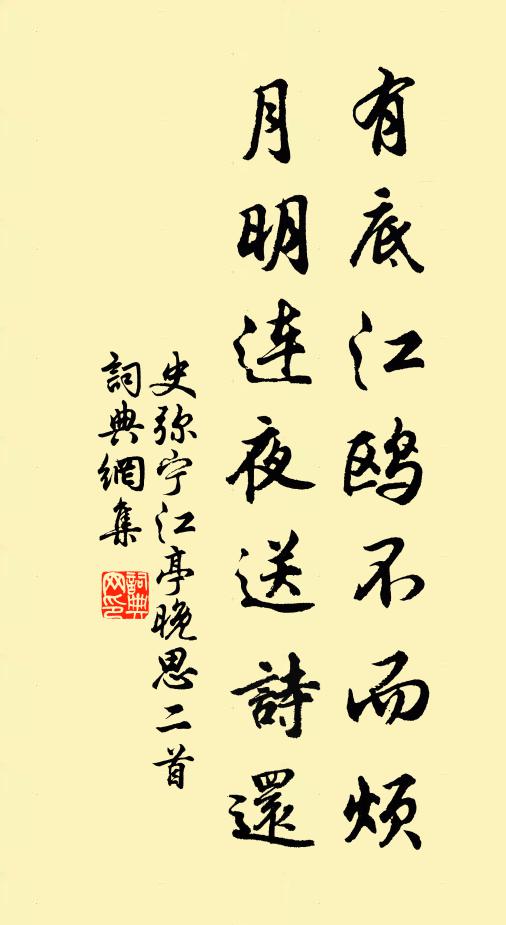 有底江鸥不而烦
月明连夜送詩還
史弥宁江亭晚思二首
詞典網集
詞典网印